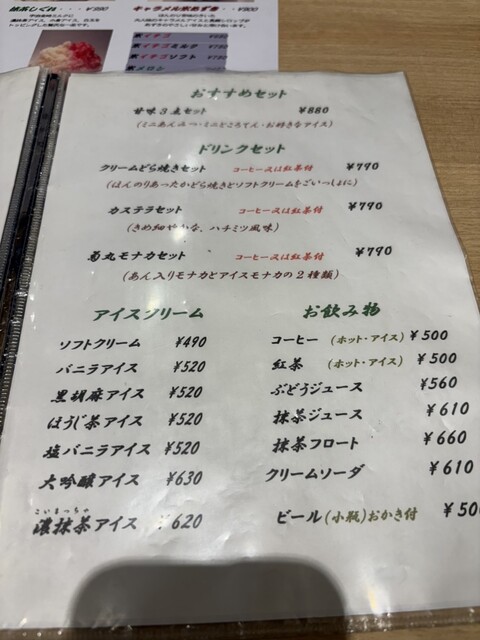 キャラメル氷あずき・・¥900
氷イチゴ
氷イチゴミルク
氷イチゴソフト
氷メロン
おすすめセット
甘味3点セット ¥880
(ミニあんみつ・ミニところてん・お好きなアイス)
ドリンクセット
クリームどら焼きセット コーヒー又は紅茶付 ¥790
(ほんのりあったかどら焼きとソフトクリームをごいっしょに)
カステラセット コーヒー又は紅茶付 ¥790
(きめ細やかな、ハチミツ風味)
菊丸モナカセット コーヒー又は紅茶付 ¥790
(あん入りモナカとアイスモナカの2種類)
アイスクリーム
ソフトクリーム ¥490
バニラアイス ¥520
黒胡麻アイス ¥520
ほうじ茶アイス ¥520
塩バニラアイス ¥520
大吟醸アイス ¥630
こいまっちゃ
濃抹茶アイス ¥620
お飲み物
コーヒー (ホット・アイス) ¥500
紅茶 (ホット・アイス) ¥500
ぶどうジュース ¥560
抹茶ジュース ¥610
抹茶フロート ¥660
クリームソーダ ¥610
ビール (小瓶)おかき付 ¥500